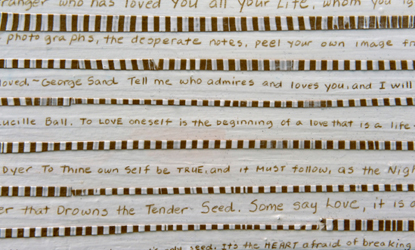 ranger who has loved you all your life, whom you ig
photographs, the desperate notes, peel your own image fr
loved. ~ George Sand Tell me who admires and loves you, and I will
ucille Ball. To LOVE oneself is the beginning of a love that is a life
Dyer To thine own self be TRUE, and it MUST follow, as the Nigh
er that Drowns the Tender Seed. Some say Love, it is a
seed. Its the HEART afraid of breaking